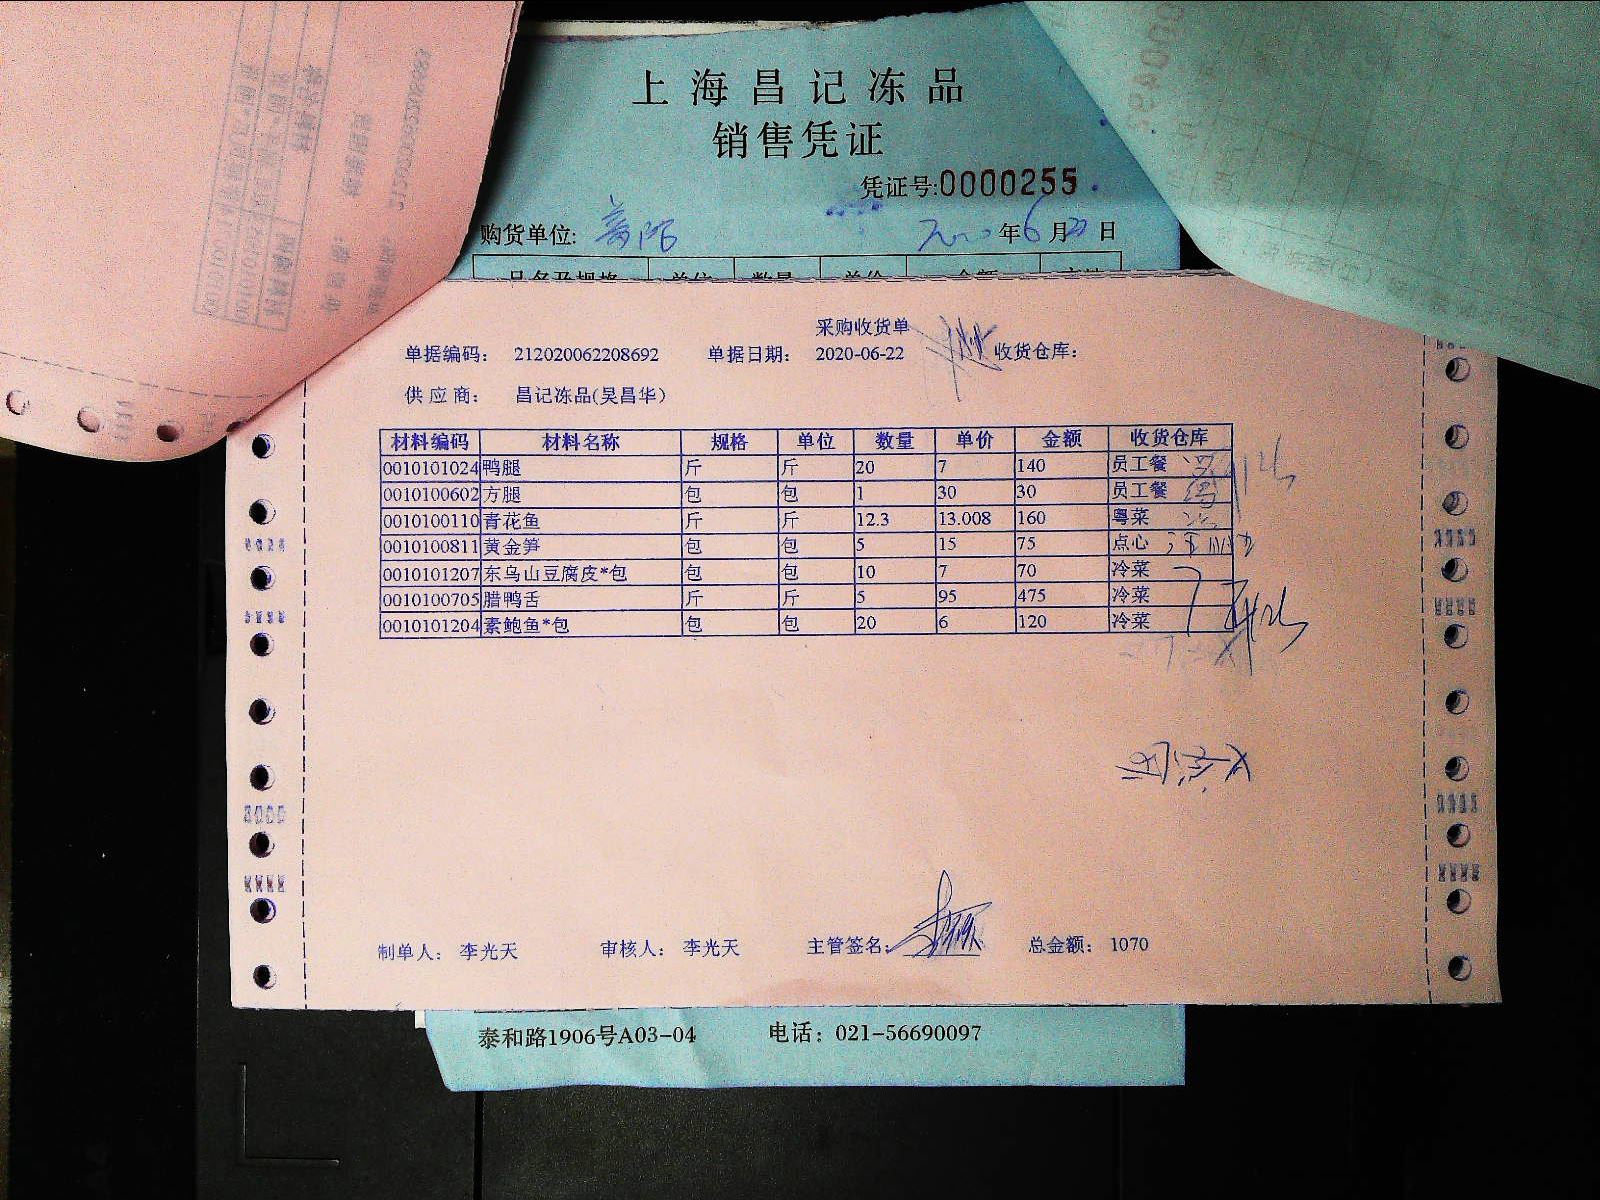 上海昌记冻品
销售凭证
凭证号:0000255
购货单位:
年6月22日
品名及规格 单位 数量 单价 金额
采购收货单
单据编码: 212020062208692 单据日期: 2020-06-22 收货仓库:
供应商: 昌记冻品(吴昌华)
材料编码 材料名称 规格 单位 数量 单价 金额 收货仓库
0010101024 鸭腿 斤 斤 20 7 140 员工餐
0010100602 方腿 包 包 1 30 30 员工餐
0010100110 青花鱼 斤 斤 12.3 13.008 160 粤菜
0010100811 黄金笋 包 包 5 15 75 点心
0010101207 东乌山豆腐皮*包 包 包 10 7 70 冷菜
0010100705 腊鸭舌 斤 斤 5 95 475 冷菜
0010101204 素鲍鱼*包 包 包 20 6 120 冷菜
制单人: 李光天 审核人: 李光天 主管签名: 总金额: 1070
泰和路1906号A03-04 电话: 021-56690097